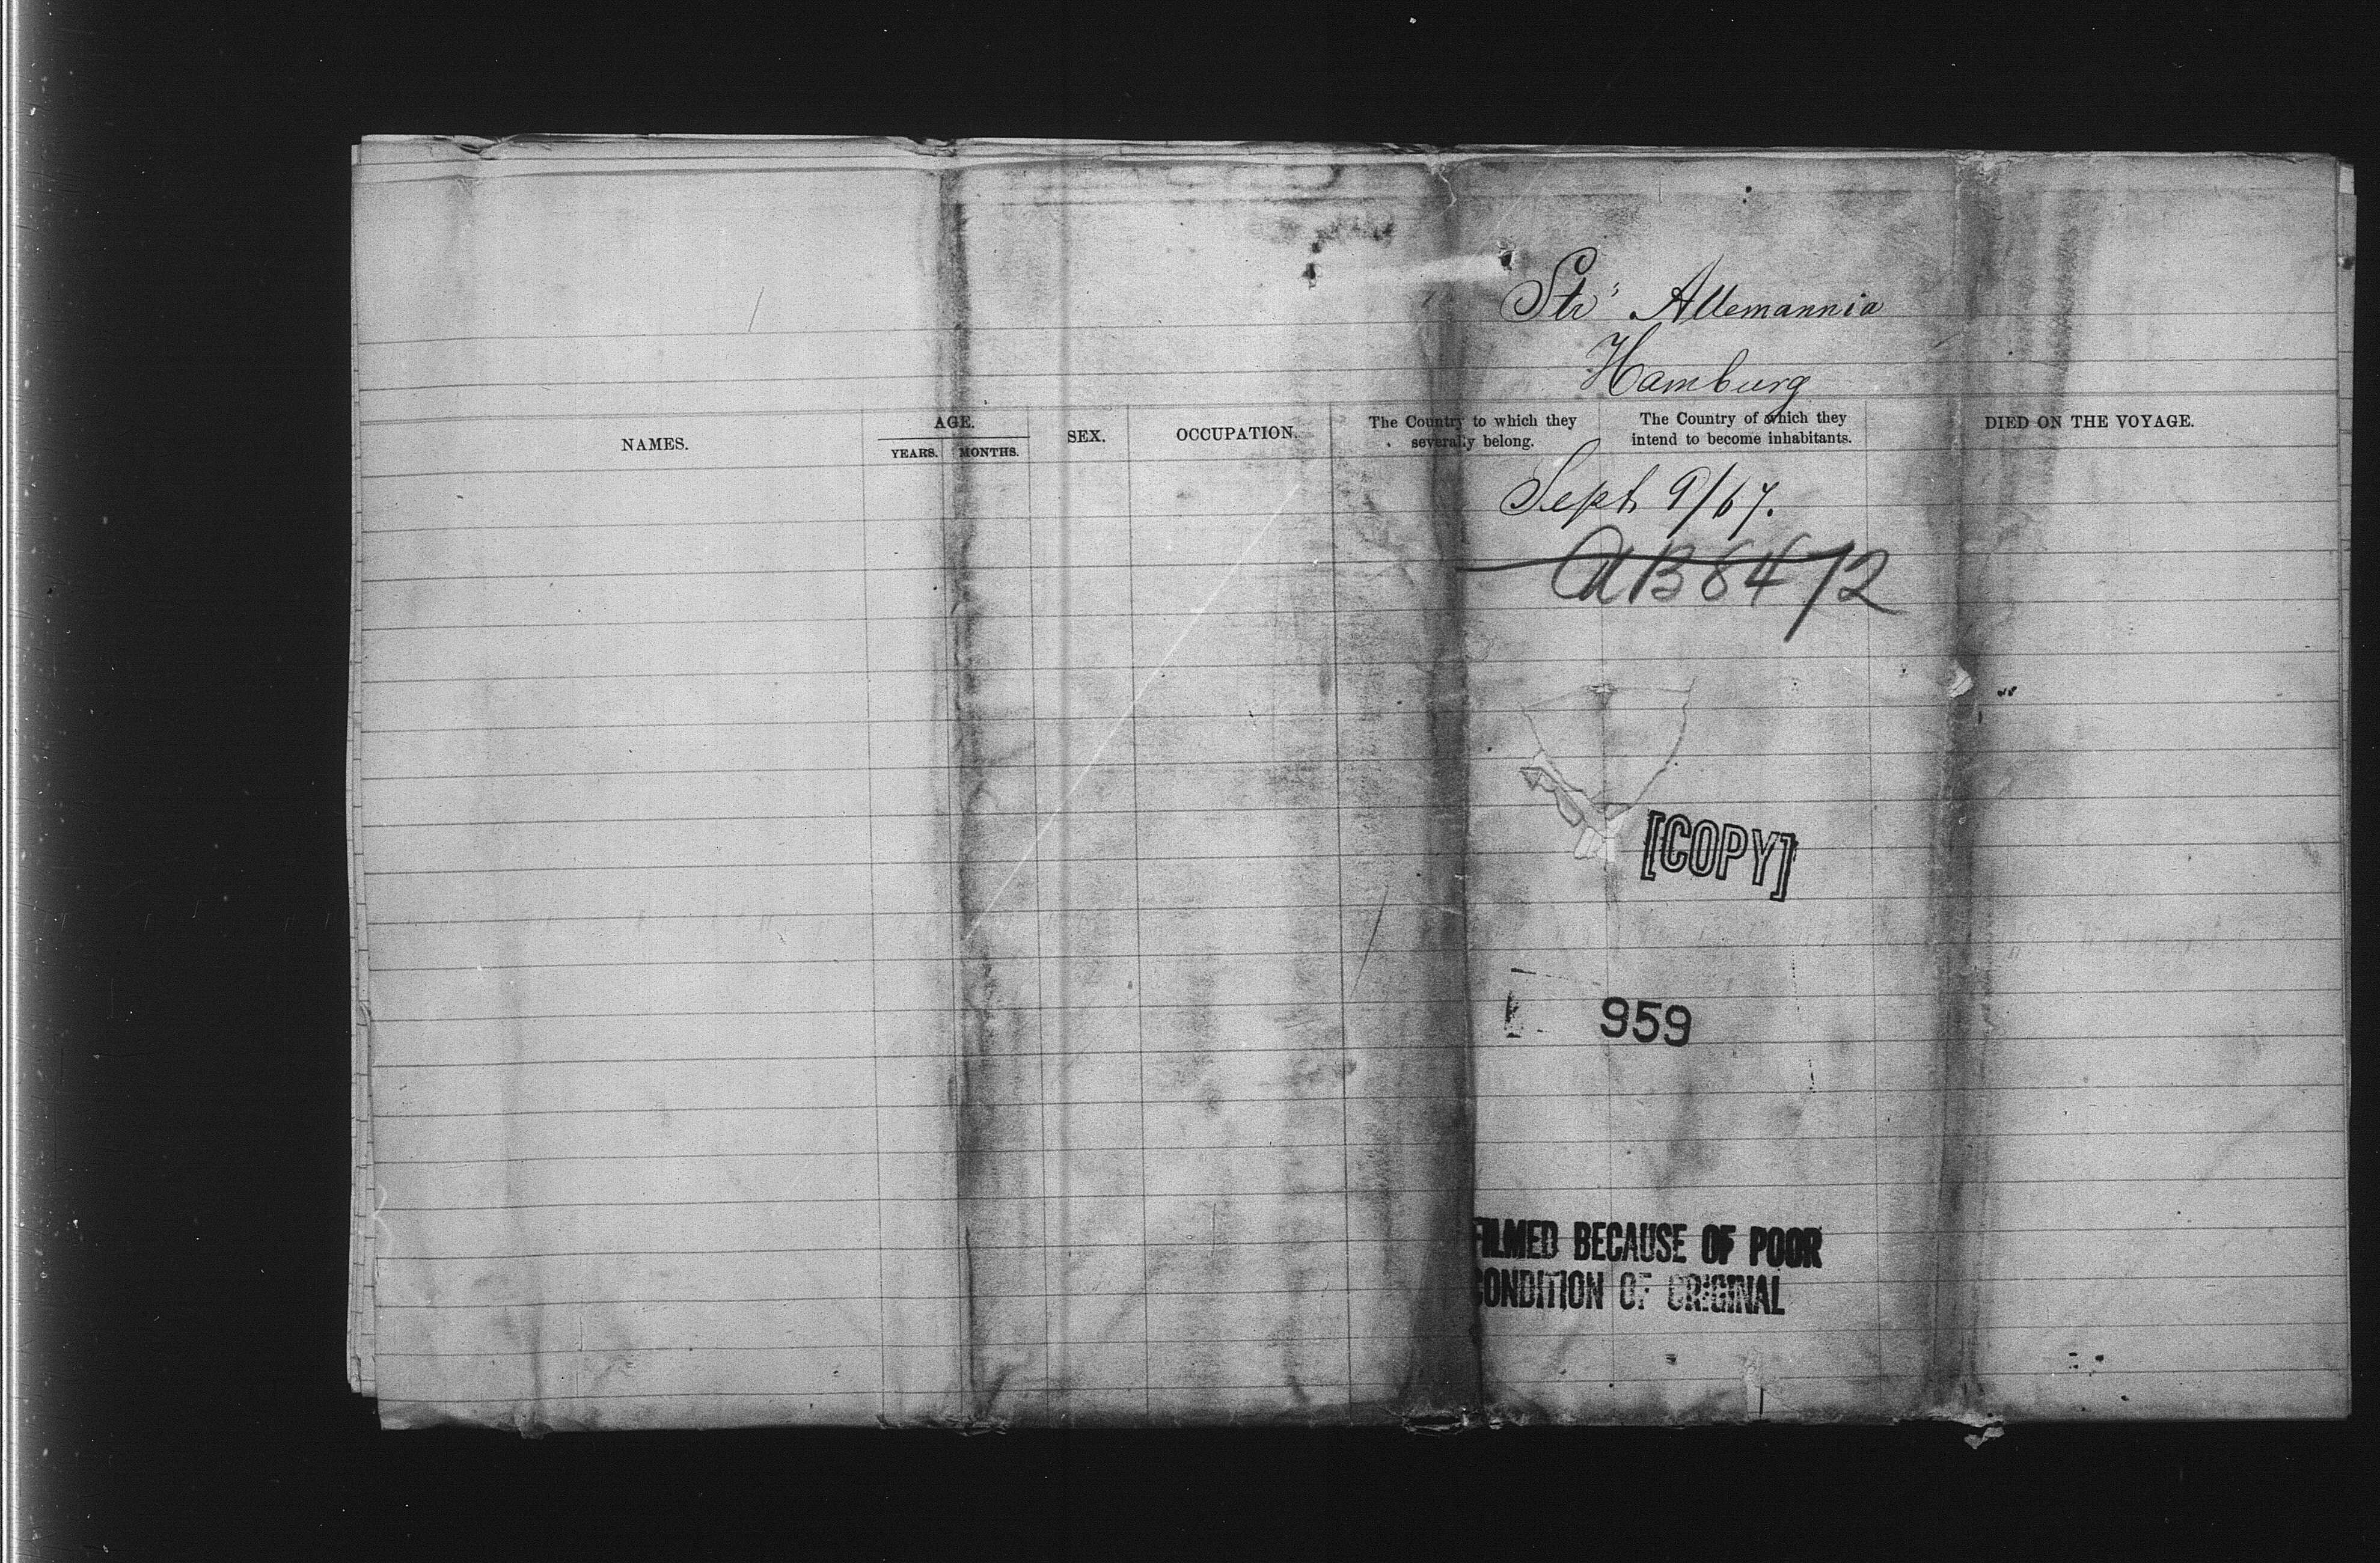 Str' Allemannia
Hamburg
NAMES.
AGE.
YEARS. MONTHS.
SEX.
OCCUPATION.
The Country to which they
severally belong.
The Country of which they
intend to become inhabitants.
DIED ON THE VOYAGE.
Sept. 9/67.
[COPY]
959
FILMED BECAUSE OF POOR
CONDITION OF ORIGINAL